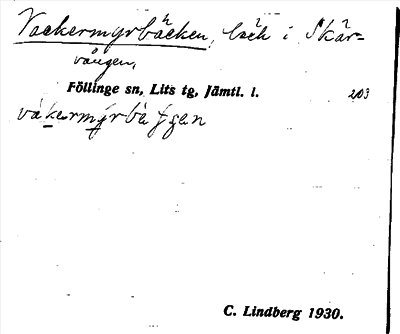 Vackermyrbäcken, bäck i Skär-
vången,
Föllinge sn, Lits tg, Jämtl. l.
203
C. Lindberg 1930.